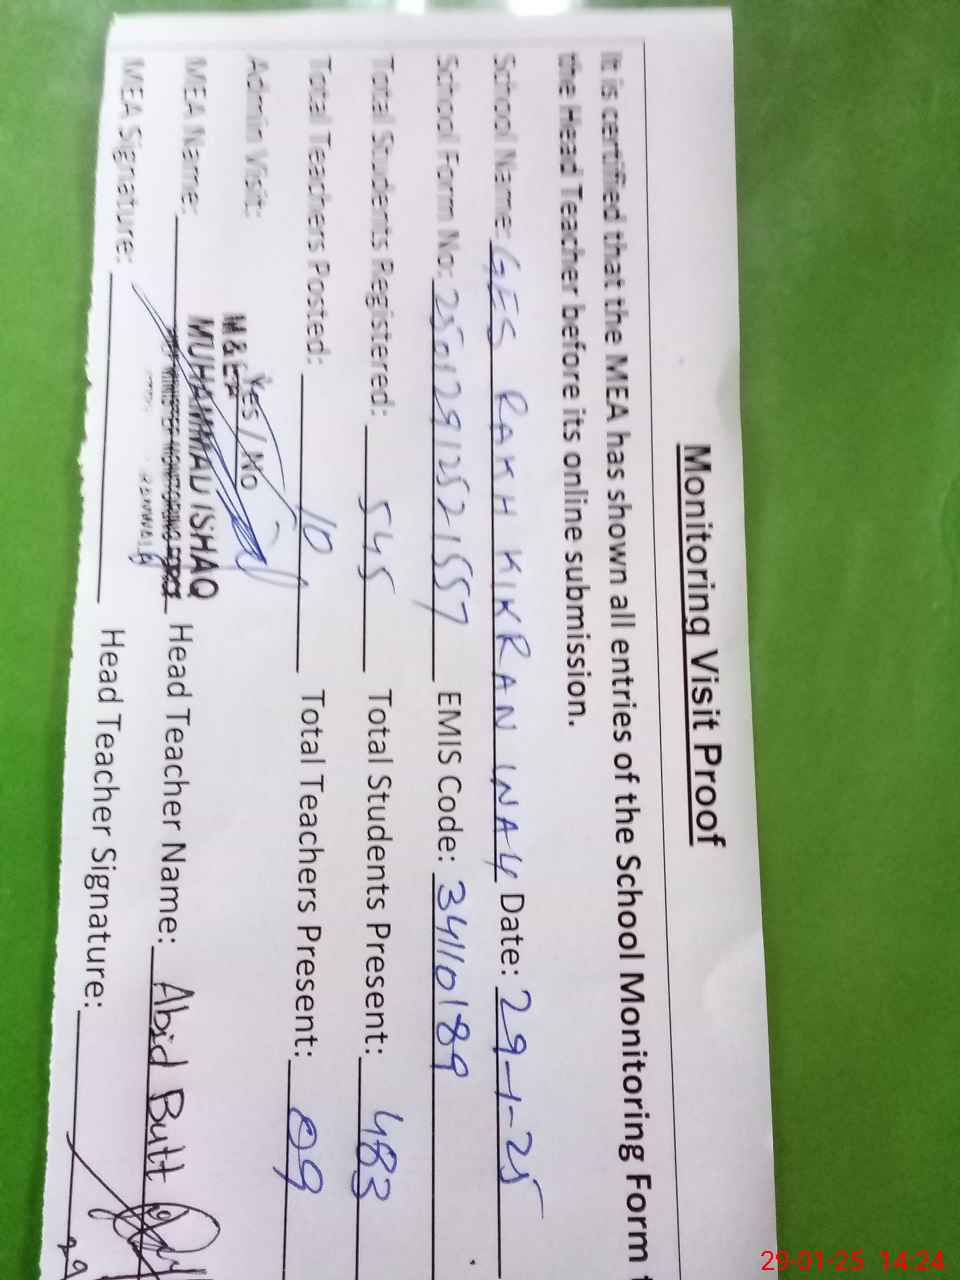 Monitoring Visit Proof
It is certified that the MEA has shown all entries of the School Monitoring Form
the Head Teacher before its online submission.
School Name: GES RAKH KIKRAN INAY Date: 29-1-25
School Form No: 25012912521557 EMIS Code: 34110189
Total Students Registered: 545 Total Students Present: 483
Total Teachers Posted: 10 Total Teachers Present: 09
Admin Visit: Yes / No
M & EA
MUHAMMAD ISHAQ
MEA Name: Head Teacher Name: Abid Butt
MEA Signature: Head Teacher Signature:
29-01-25 14:24